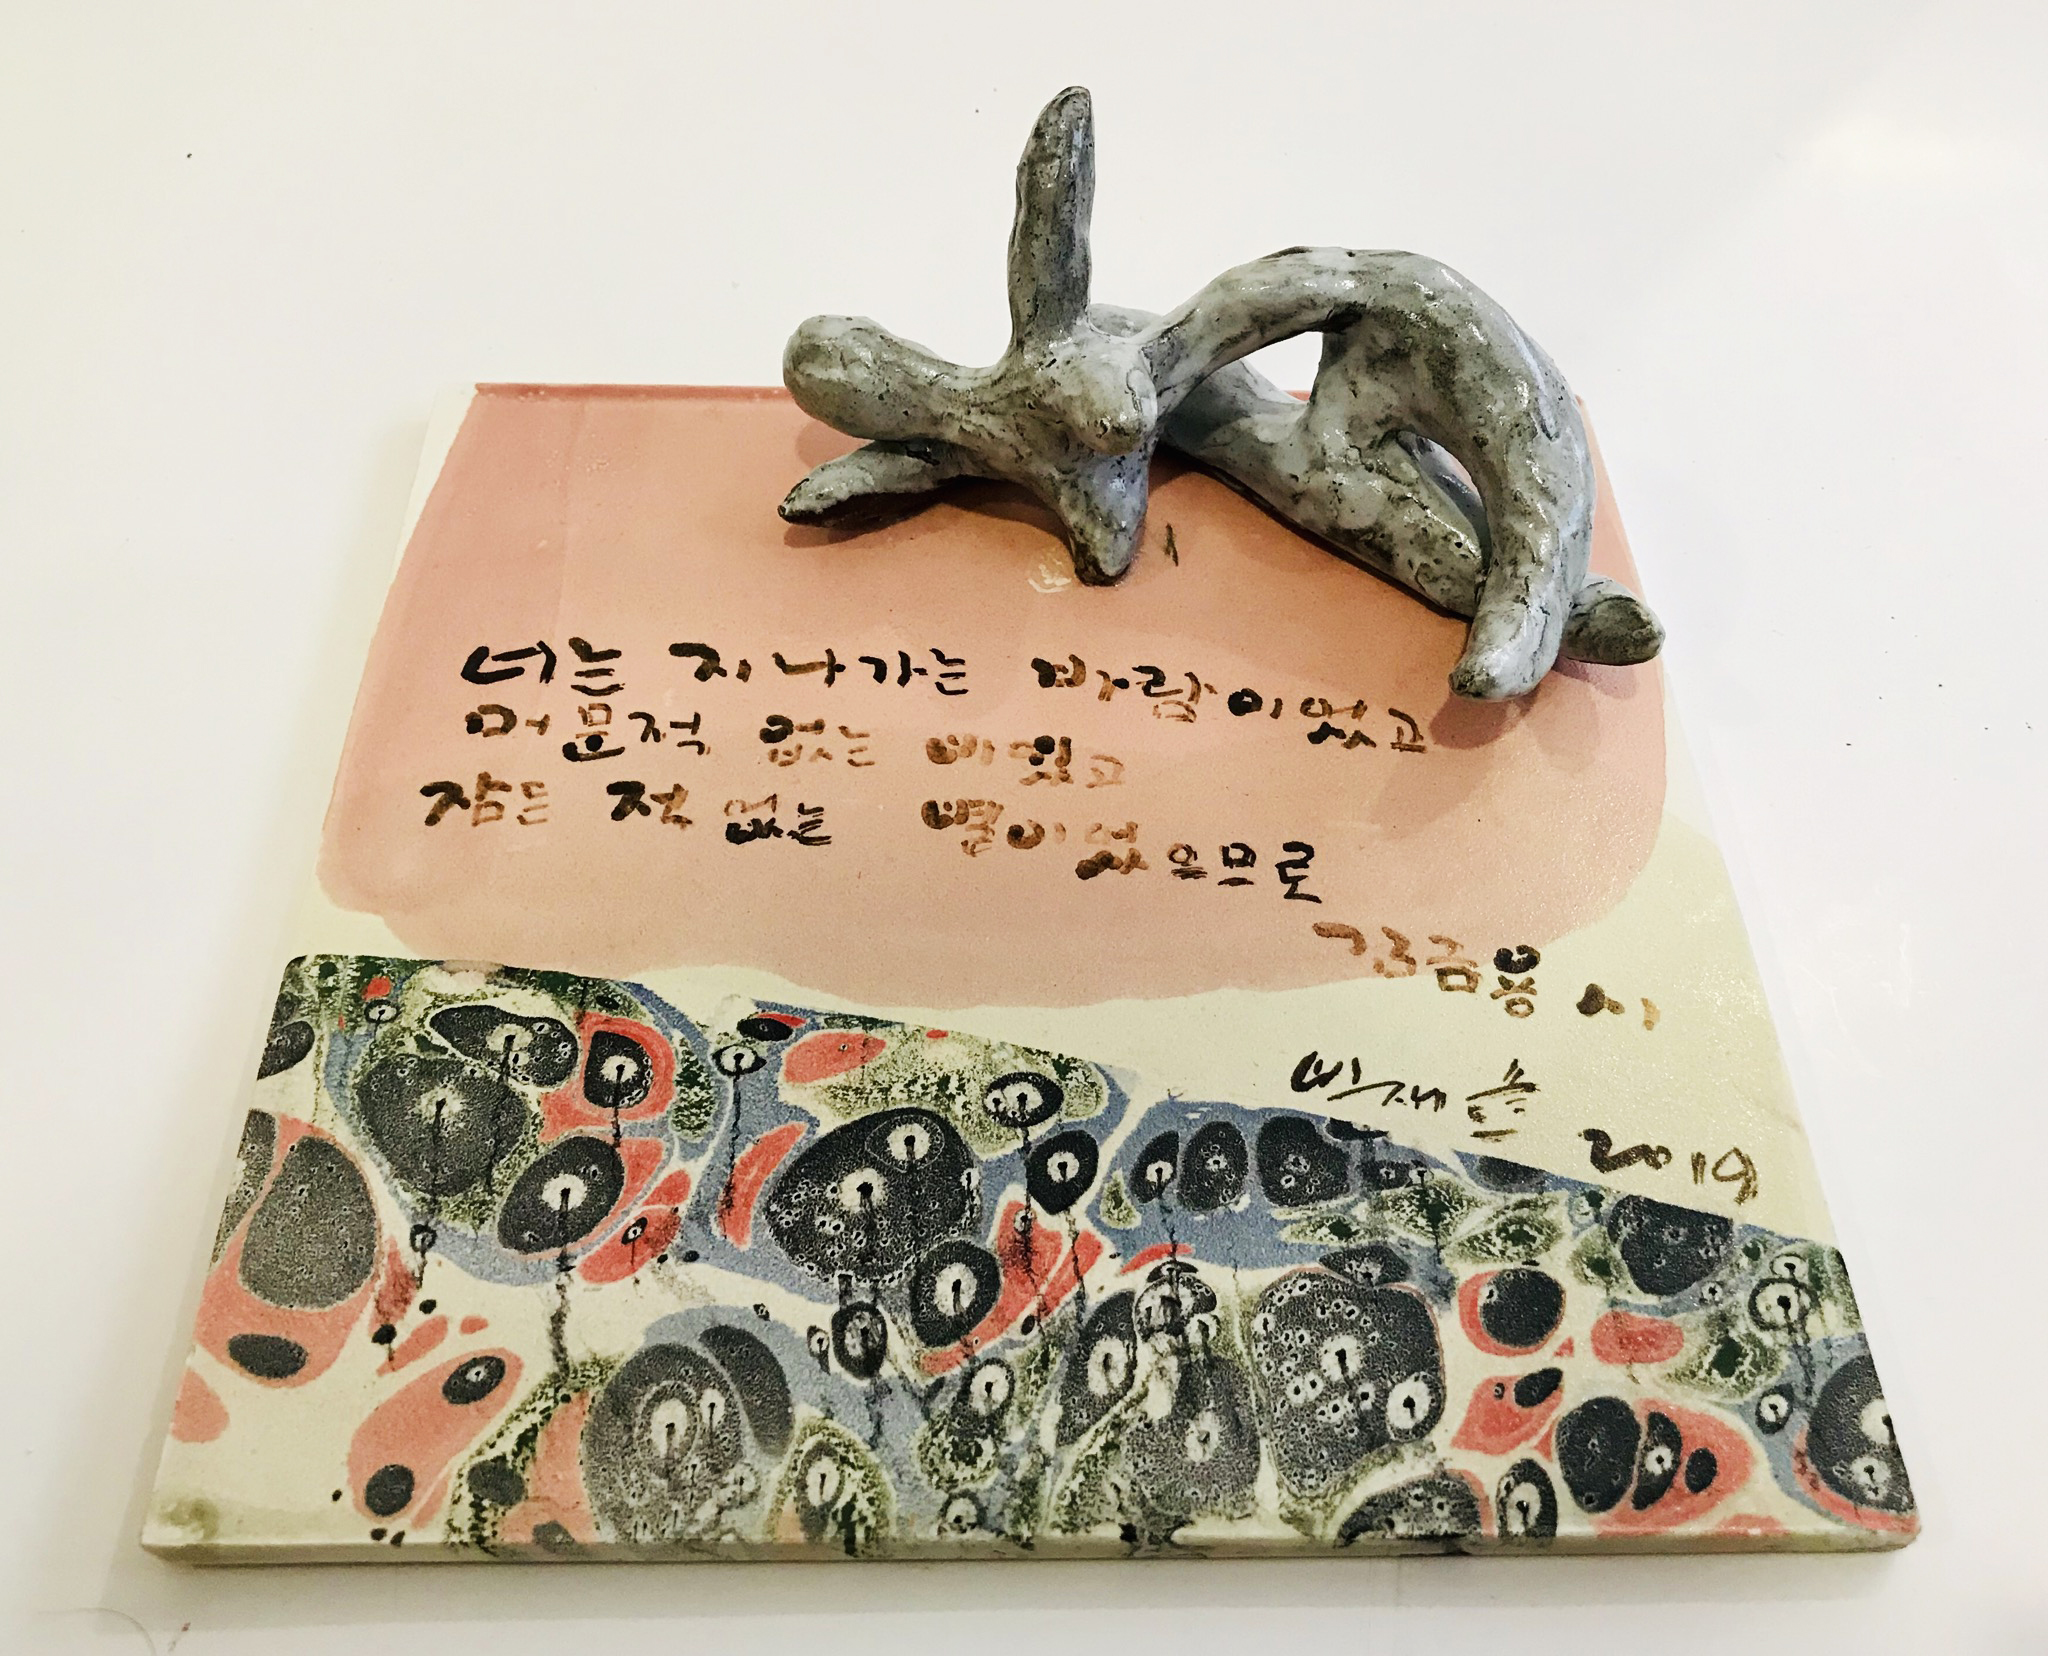 너는 지나가는 바람이었고
머문적 없는 비였고
잠든 적 없는 별이었으므로
김금용 시
2019